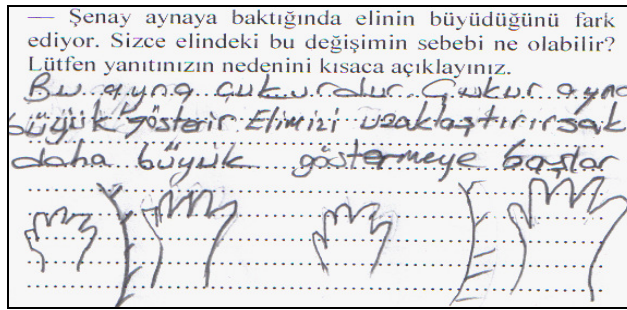 — Şenay aynaya baktığında elinin büyüdüğünü fark
ediyor. Sizce elindeki bu değişimin sebebi ne olabilir?
Lütfen yanıtınızın nedenini kısaca açıklayınız.
Bu ayna çukurdur. Çukur ayna
büyük gösterir Elimizi uzaklaştırırsak
daha büyük göstermeye başlar